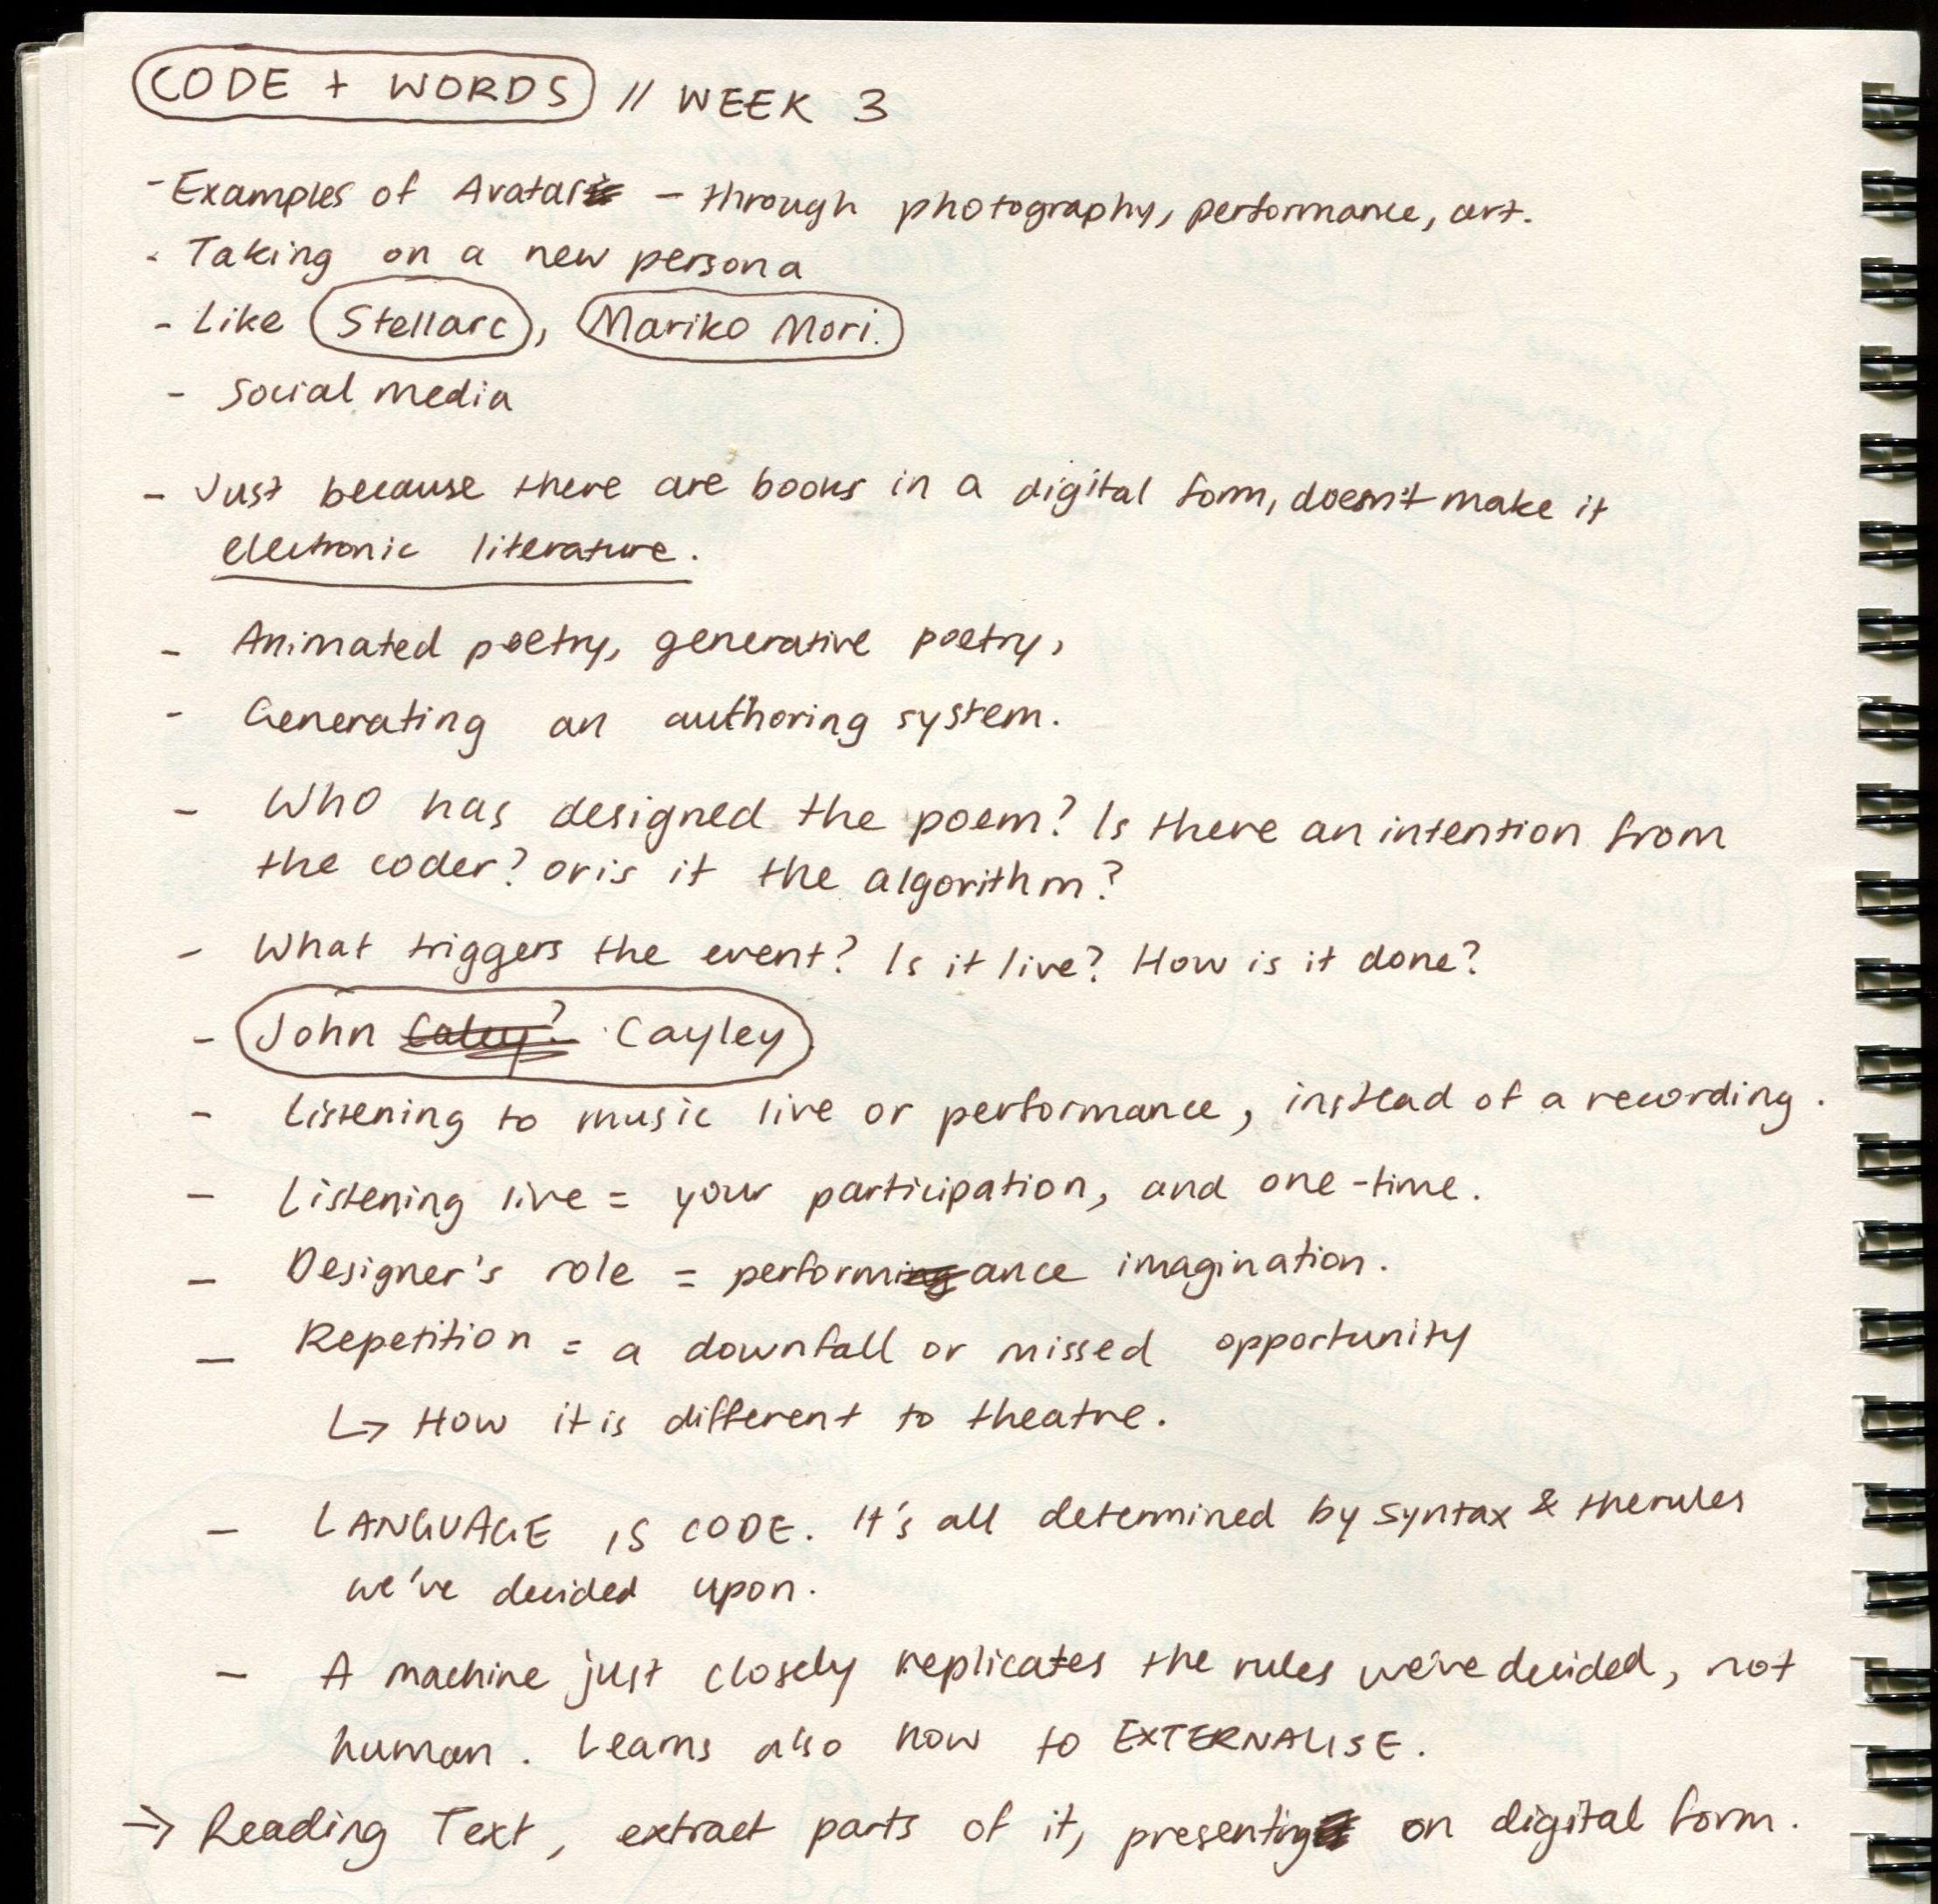 CODE + WORDS // WEEK 3
- Examples of Avatar - through photography, performance, art.
- Taking on a new persona
- Like Stellarc, Mariko Mori.
- Social media
- Just because there are books in a digital form, doesn't make it
electronic literature.
- Animated poetry, generative poetry,
- Generating an authoring system.
- Who has designed the poem? Is there an intention from
the coder? or is it the algorithm?
- What triggers the event? Is it live? How is it done?
- John Caley? Cayley
- Listening to music live or performance, instead of a recording.
- Listening live = your participation, and one-time.
- Designer's role = performance imagination.
- Repetition = a downfall or missed opportunity
↳ How it is different to theatre.
- LANGUAGE IS CODE. It's all determined by syntax & the rules
we've decided upon.
- A machine just closely replicates the rules we've decided, not
human. Learns also how to EXTERNALISE.
→ Reading Text, extract parts of it, presenting on digital form.